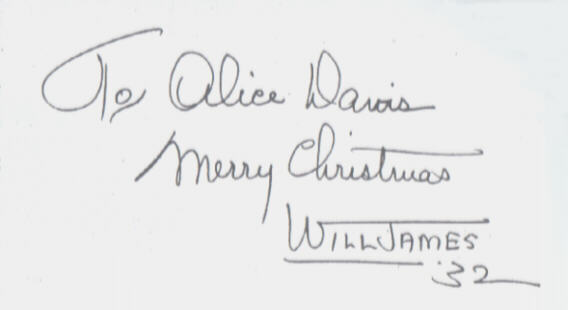 To Alice Davis
Merry Christmas
WILL JAMES
'32